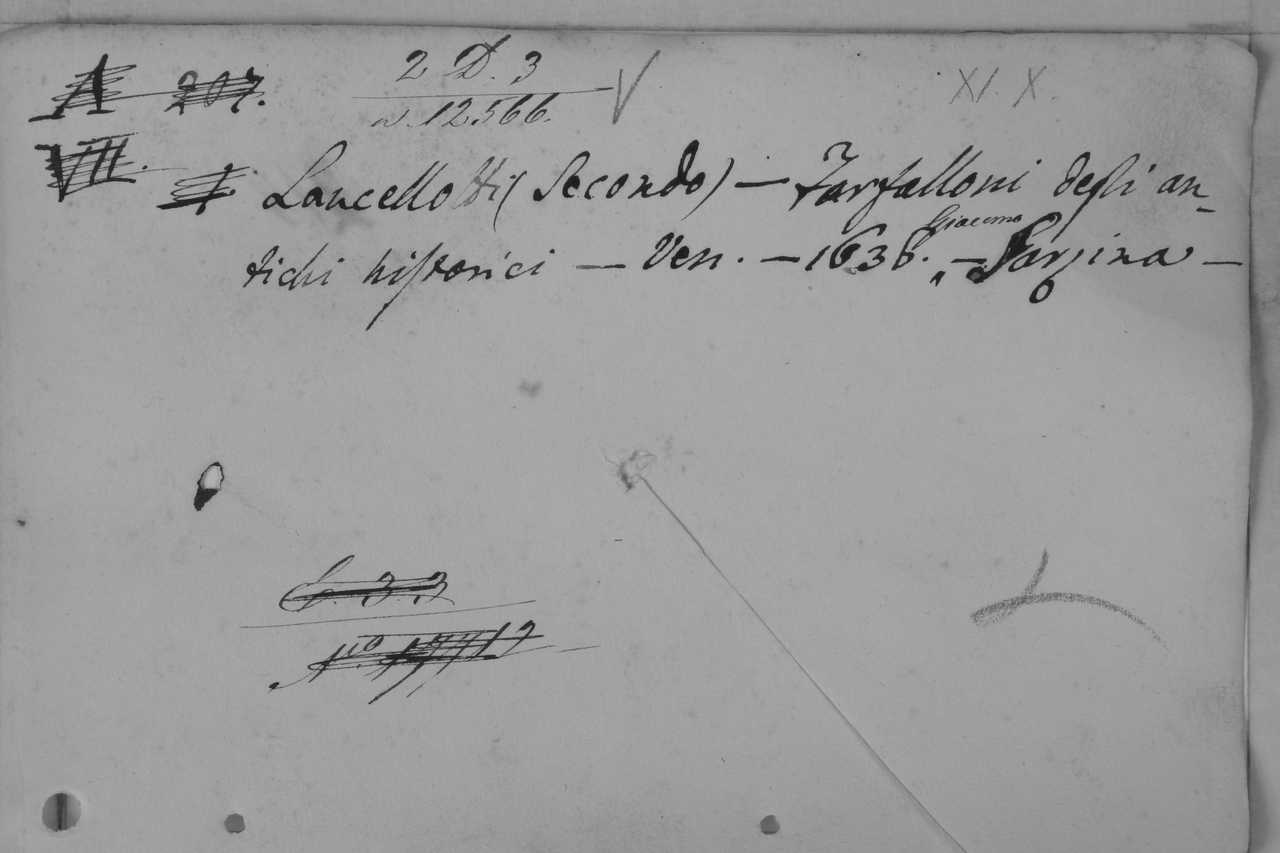 A 207. 2 D. 3 V XI. X.
n. 12566.
VII.
I Lancellotti (Secondo) — Farfalloni degli an-
Giacomo
tichi historici — Ven. — 1636. — Sarzina —
C. 3. 3